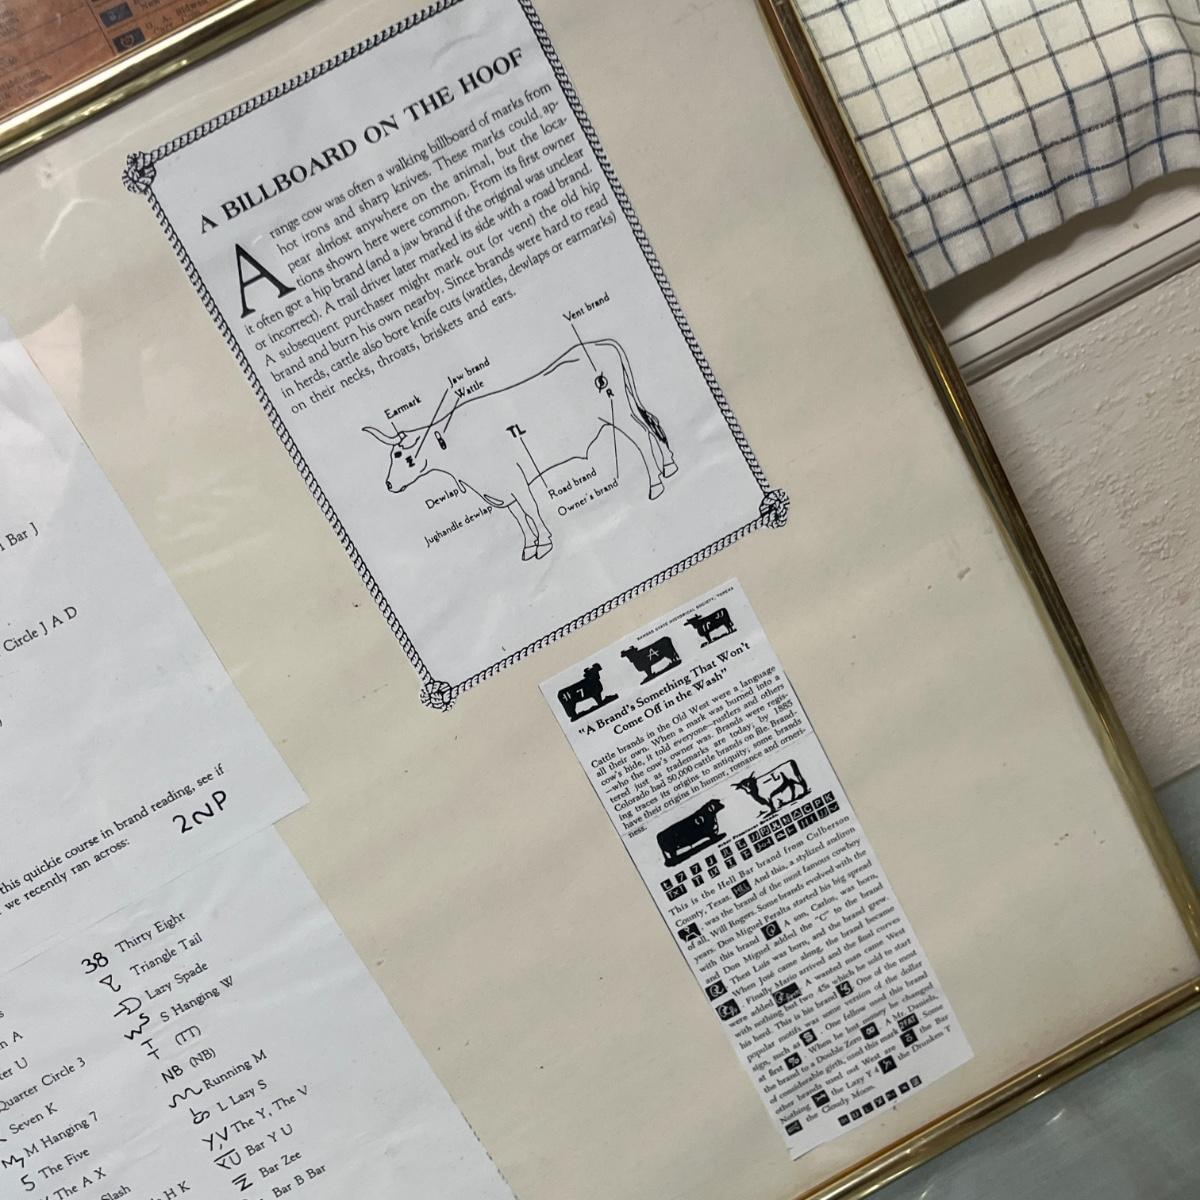 A BILLBOARD ON THE HOOF
A range cow was often a walking billboard of marks from
hot irons and sharp knives. These marks could, ap-
pear almost anywhere on the animal, but the loca-
tions shown here were common. From its first owner
it often got a hip brand (and a jaw brand if the original was unclear
or incorrect). A trail driver later marked its side with a road brand.
A subsequent purchaser might mark out (or vent) the old hip
brand and burn his own nearby. Since brands were hard to read
in herds, cattle also bore knife cuts (wattles, dewlaps or earmarks)
on their necks, throats, briskets and ears.
Vent brand
Jaw brand
Wattle
Earmark
R
TL
Dewlap
Road brand
Jughandle dewlap
Owner's brand
KANSAS STATE HISTORICAL SOCIETY, TOPEKA
"A Brand's Something That Won't
Come Off in the Wash"
Cattle brands in the Old West were a language
all their own. When a mark was burned into a
cow's hide, it told everyone—rustlers and others
—who the cow's owner was. Brands were regis-
tered just as trademarks are today; by 1885
Colorado had 50,000 cattle brands on file. Brand-
ing traces its origins to antiquity; some brands
have their origins in humor, romance and orneri-
ness.
This is the Hell Bar brand from Culberson
County, Texas. And this, a stylized andiron
, was the brand of the most famous cowboy
of all, Will Rogers. Some brands evolved with the
years. Don Miguel Peralta started his big spread
with this brand A son, Carlos, was born,
and Don Miguel added the "C" to the brand
. Then Luis was born, and the brand grew.
When José came along, the brand became
. Finally Mario arrived and the final curves
were added . A wanted man came West
with nothing but two 45s which he sold to start
his herd. This is his brand . One of the most
popular motifs was some version of the dollar
sign, such as . One fellow used this brand
at first . When he lost money he changed
the brand to a Double Zero . A Mr. Daniels,
of considerable girth, used this mark . Some
other brands used out West are the Bar
Nothing the Lazy Y 4 the Drunken T
the Cloudy Moon.
Bar J
Circle J A D
this quickie course in brand reading, see if
we recently ran across:
2NP
38 Thirty Eight
Triangle Tail
Lazy Spade
S Hanging W
(TT)
NB (NB)
Running M
L Lazy S
Y,V The Y, The V
Bar Y U
Bar Zee
Bar B Bar
Quarter Circle 3
Seven K
M Hanging 7
5 The Five
The A X
Slash
H K